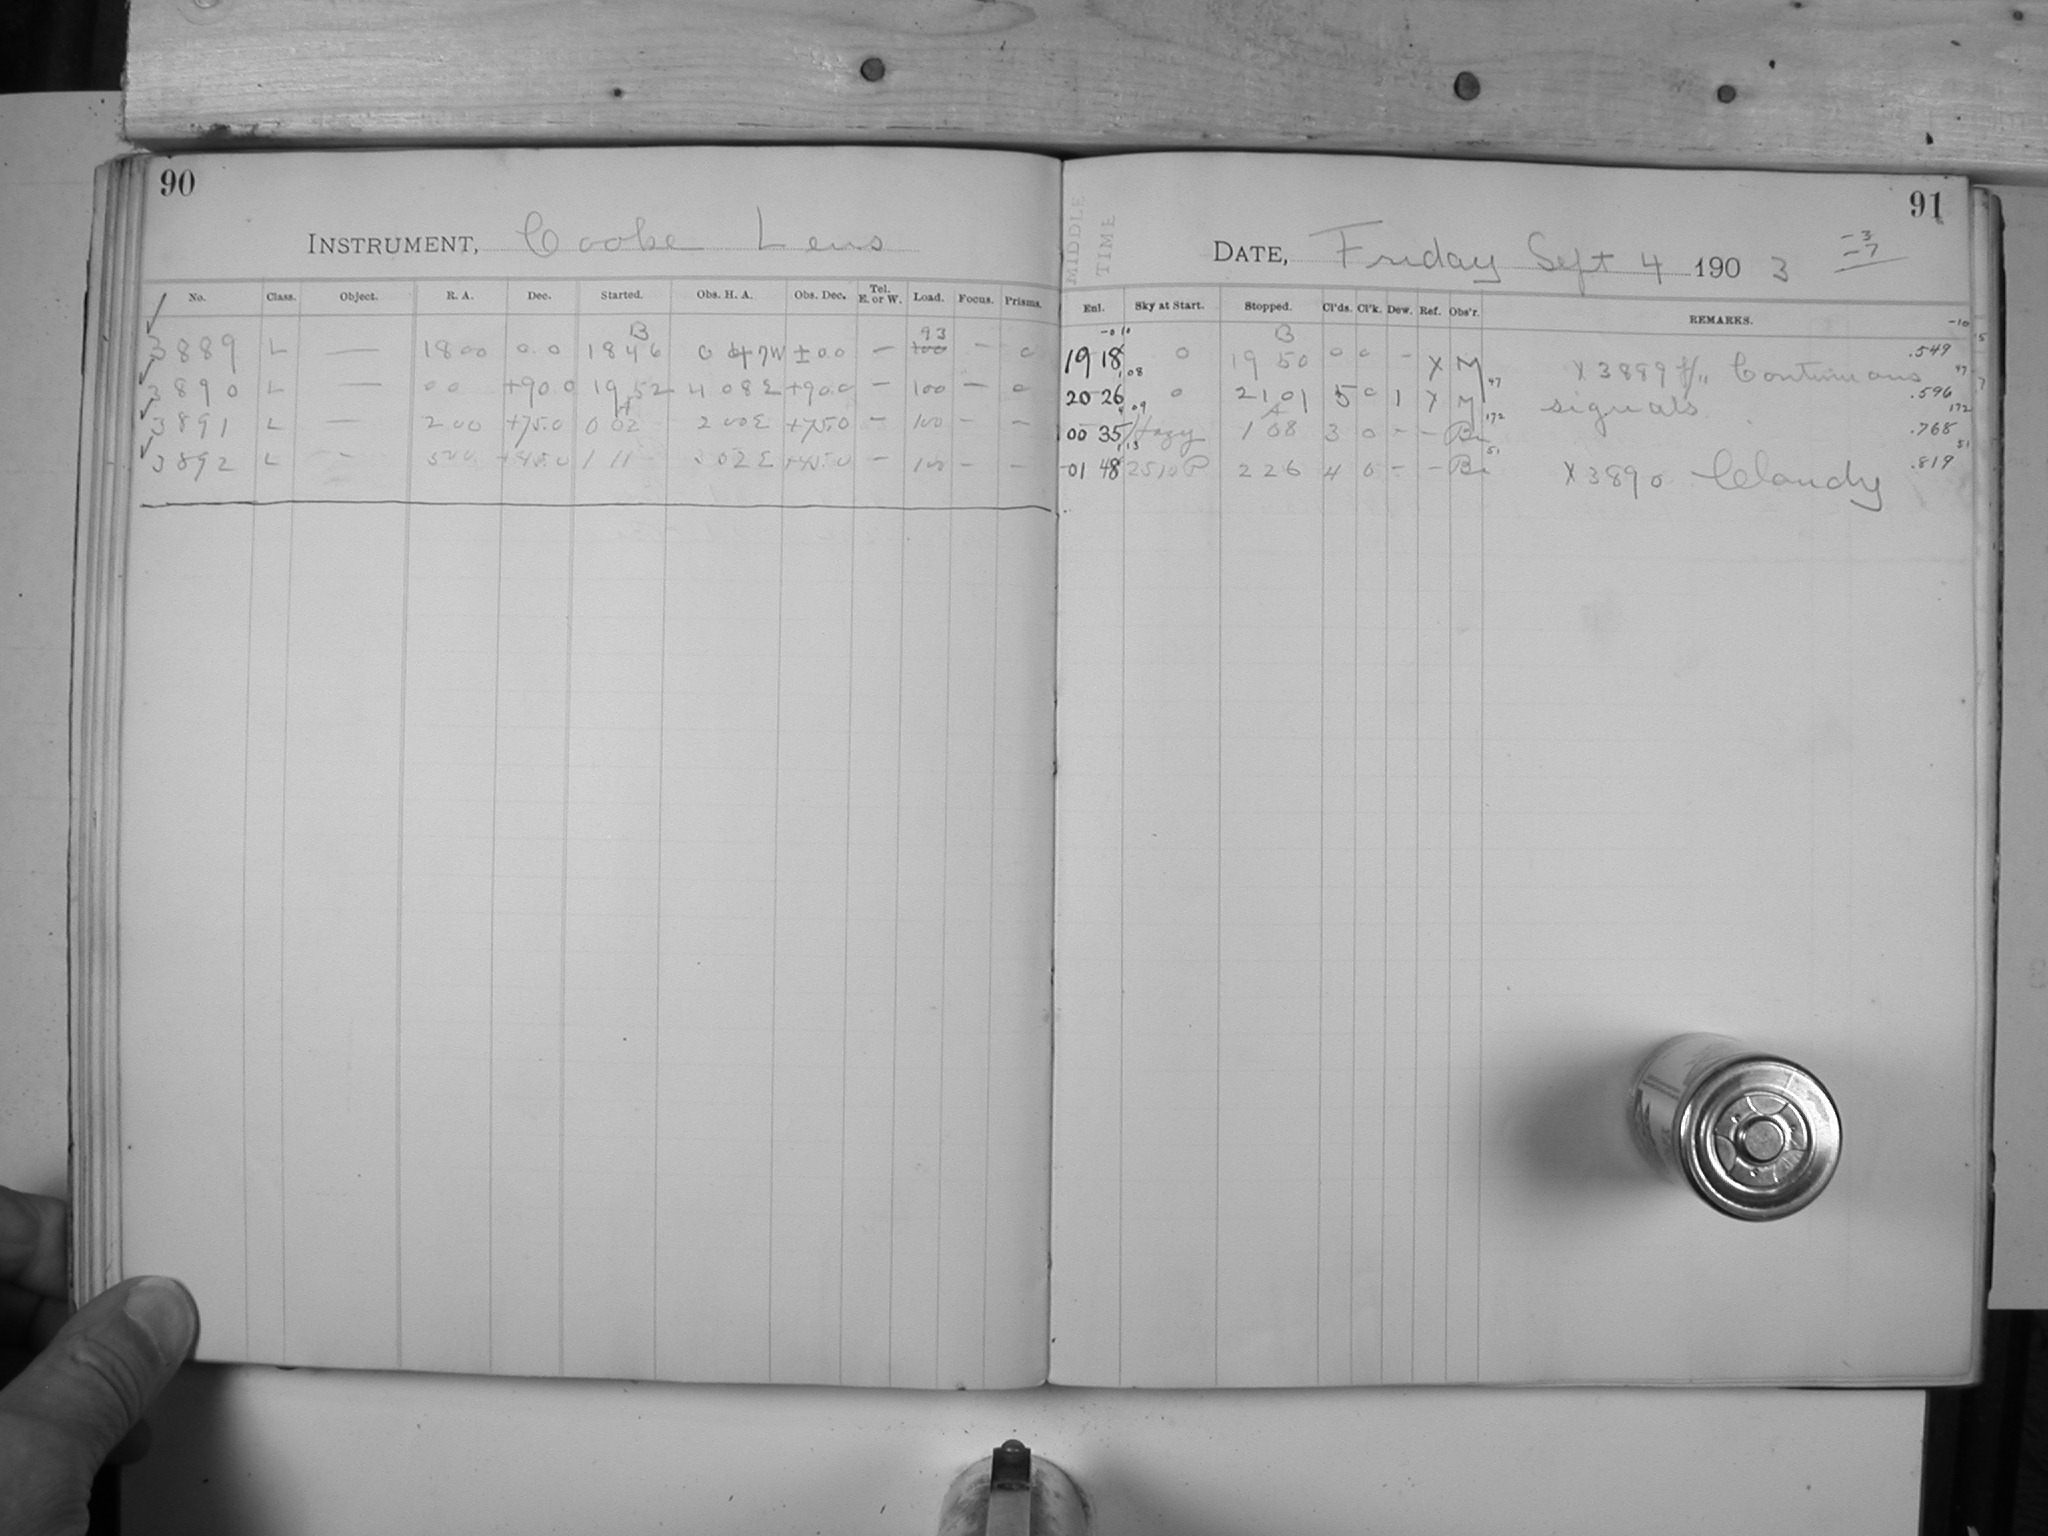 90
INSTRUMENT, Cooke Lens
No. Class. Object. R. A. Dec. Started. Obs. H. A. Obs. Dec. Tel. E. or W. Load. Focus. Prisms.
B 93
3889 L — 18 00 0.0 18 46 0 47 W ±00 — 100 — 0
3890 L — 00 +90.0 19 52 4 08 E +90.0 — 100 — 0
3891 L — 2 00 +75.0 0 02 2 00 E +75.0 — 100 — —
3892 L — 5 00 +45.0 1 11 3 02 E +45.0 — 100 — —
91
MIDDLE TIME
DATE, Friday Sept 4 1903
-3
-7
Enl. Sky at Start. Stopped. Cl'ds. Cl'k. Dew. Ref. Obs'r. REMARKS.
-10
B
19 18 0 19 50 0 0 - X M X 3889 Continuous .549
20 26 0 21 01 5 0 1 X M signals. .596
00 35 Hazy 1 08 3 0 - - Bi .768
01 48 2510P 2 26 4 0 - - Bi X 3890 Cloudy .819